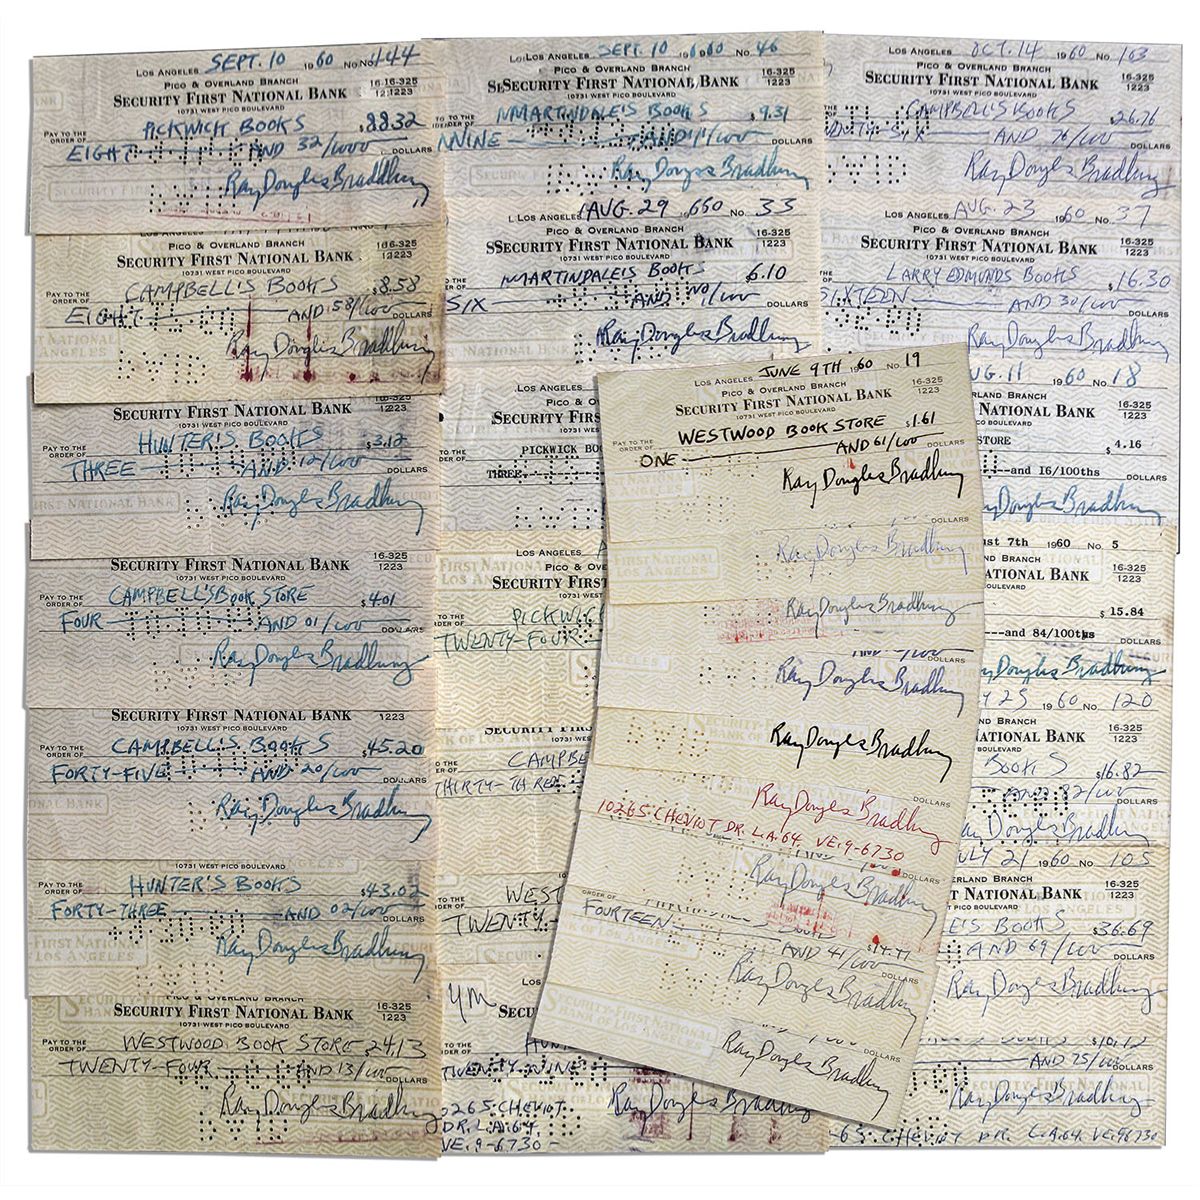 LOS ANGELES SEPT. 10 1960 No. 144
PICO & OVERLAND BRANCH 16-325
SECURITY FIRST NATIONAL BANK 1223
10731 WEST PICO BOULEVARD
PAY TO THE ORDER OF PICKWICK BOOKS $8.32
EIGHT AND 32/100 DOLLARS
Ray Douglas Bradbury
PICO & OVERLAND BRANCH 16-325
SECURITY FIRST NATIONAL BANK 1223
10731 WEST PICO BOULEVARD
PAY TO THE ORDER OF CAMPBELL'S BOOKS $8.58
EIGHT AND 58/100 DOLLARS
Ray Douglas Bradbury
SECURITY FIRST NATIONAL BANK 1223
10731 WEST PICO BOULEVARD
PAY TO THE ORDER OF HUNTER'S BOOKS $3.12
THREE AND 12/100 DOLLARS
Ray Douglas Bradbury
SECURITY FIRST NATIONAL BANK 16-325
10731 WEST PICO BOULEVARD 1223
PAY TO THE ORDER OF CAMPBELL'S BOOK STORE $4.01
FOUR AND 01/100 DOLLARS
Ray Douglas Bradbury
SECURITY FIRST NATIONAL BANK 1223
10731 WEST PICO BOULEVARD
PAY TO THE ORDER OF CAMPBELL'S BOOKS $45.20
FORTY-FIVE AND 20/100 DOLLARS
Ray Douglas Bradbury
10731 WEST PICO BOULEVARD
PAY TO THE ORDER OF HUNTER'S BOOKS $43.02
FORTY-THREE AND 02/100 DOLLARS
Ray Douglas Bradbury
PICO & OVERLAND BRANCH 16-325
SECURITY FIRST NATIONAL BANK 1223
10731 WEST PICO BOULEVARD
PAY TO THE ORDER OF WESTWOOD BOOK STORE 24.13
TWENTY-FOUR AND 13/100 DOLLARS
Ray Douglas Bradbury
LOS ANGELES SEPT. 10 1960 No. 46
PICO & OVERLAND BRANCH 16-325
SECURITY FIRST NATIONAL BANK 1223
10731 WEST PICO BOULEVARD
MARTINDALE'S BOOKS $9.31
NINE AND DOLLARS
Ray Douglas Bradbury
LOS ANGELES AUG. 29 1960 No. 33
PICO & OVERLAND BRANCH 16-325
SECURITY FIRST NATIONAL BANK 1223
10731 WEST PICO BOULEVARD
MARTINDALE'S BOOKS 6.10
SIX AND 10/100 DOLLARS
Ray Douglas Bradbury
PICO &
SECURITY FIRST
10731 WEST
PICKWICK BOO
THREE
LOS ANGELES
PICO & OV
SECURITY FIRS
10731 WEST
PICKWIC
TWENTY-FOUR
SECURITY FIRST
CAMPBE
THIRTY-THREE
WEST
TWENTY-
LOS
SECU
HUN
TWENTY-NINE
Ray Douglas Bradbury
10265 CHEVIOT
DR. L.A. 64.
VE. 9-6730
LOS ANGELES OCT. 14 1960 No. 163
PICO & OVERLAND BRANCH 16-325
SECURITY FIRST NATIONAL BANK 1223
10731 WEST PICO BOULEVARD
CAMPBELL'S BOOKS $26.76
SIX AND 76/100 DOLLARS
Ray Douglas Bradbury
LOS ANGELES AUG. 23 1960 No. 37
PICO & OVERLAND BRANCH 16-325
SECURITY FIRST NATIONAL BANK 1223
10731 WEST PICO BOULEVARD
LARRY EDMUNDS BOOKS $16.30
SIXTEEN AND 30/100 DOLLARS
Ray Douglas Bradbury
UG. 11 1960 No. 18
NATIONAL BANK 16-325
PICO BOULEVARD 1223
STORE $ 4.16
--and 16/100ths DOLLARS
Douglas Bradbury
ust 7th 1960 No. 5
ND BRANCH 16-325
ATIONAL BANK 1223
BOULEVARD
$ 15.84
---and 84/100ths DOLLARS
Douglas Bradbury
Y 25 1960 No 120
ND BRANCH 16-325
NATIONAL BANK 1223
BOULEVARD
BOOKS $16.82
AND 82/100 DOLLARS
Ray Douglas Bradbury
ULY 21 1960 No. 105
ERLAND BRANCH 16-325
T NATIONAL BANK 1223
PICO BOULEVARD
E'S BOOKS $36.69
AND 69/100 DOLLARS
Ray Douglas Bradbury
$10.12
AND 75/100 DOLLARS
Ray Douglas Bradbury
-65 CHEVIOT DR. L.A. 64. VE. 96730
LOS ANGELES JUNE 9TH 1960 No. 19
PICO & OVERLAND BRANCH 16-325
SECURITY FIRST NATIONAL BANK 1223
10731 WEST PICO BOULEVARD
PAY TO THE ORDER OF WESTWOOD BOOK STORE $1.61
ONE AND 61/100 DOLLARS
Ray Douglas Bradbury
DOLLARS
Ray Douglas Bradbury
Ray Douglas Bradbury
DOLLARS
Ray Douglas Bradbury
Ray Douglas Bradbury
DOLLARS
Ray Douglas Bradbury
10265 CHEVIOT DR. L.A. 64. VE. 9-6730
DOLLARS
Ray Douglas Bradbury
ORDER OF
FOURTEEN AND 41/100 DOLLARS
Ray Douglas Bradbury
DOLLARS
Ray Douglas Bradbury